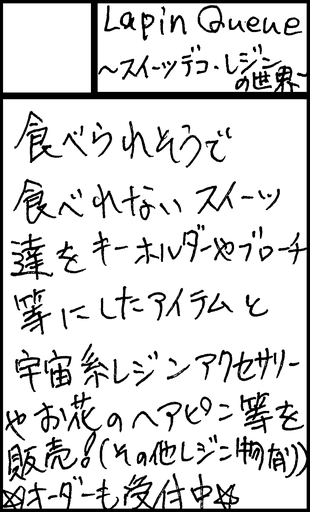 Lapin Queue
～スイーツデコ・レジン
の世界～
食べられそうで
食べれないスイーツ
達をキーホルダーやブローチ
等にしたアイテムと
宇宙系レジンアクセサリー
やお花のヘアピン等を
販売!(その他レジン物有り)
☆オーダーも受付中☆